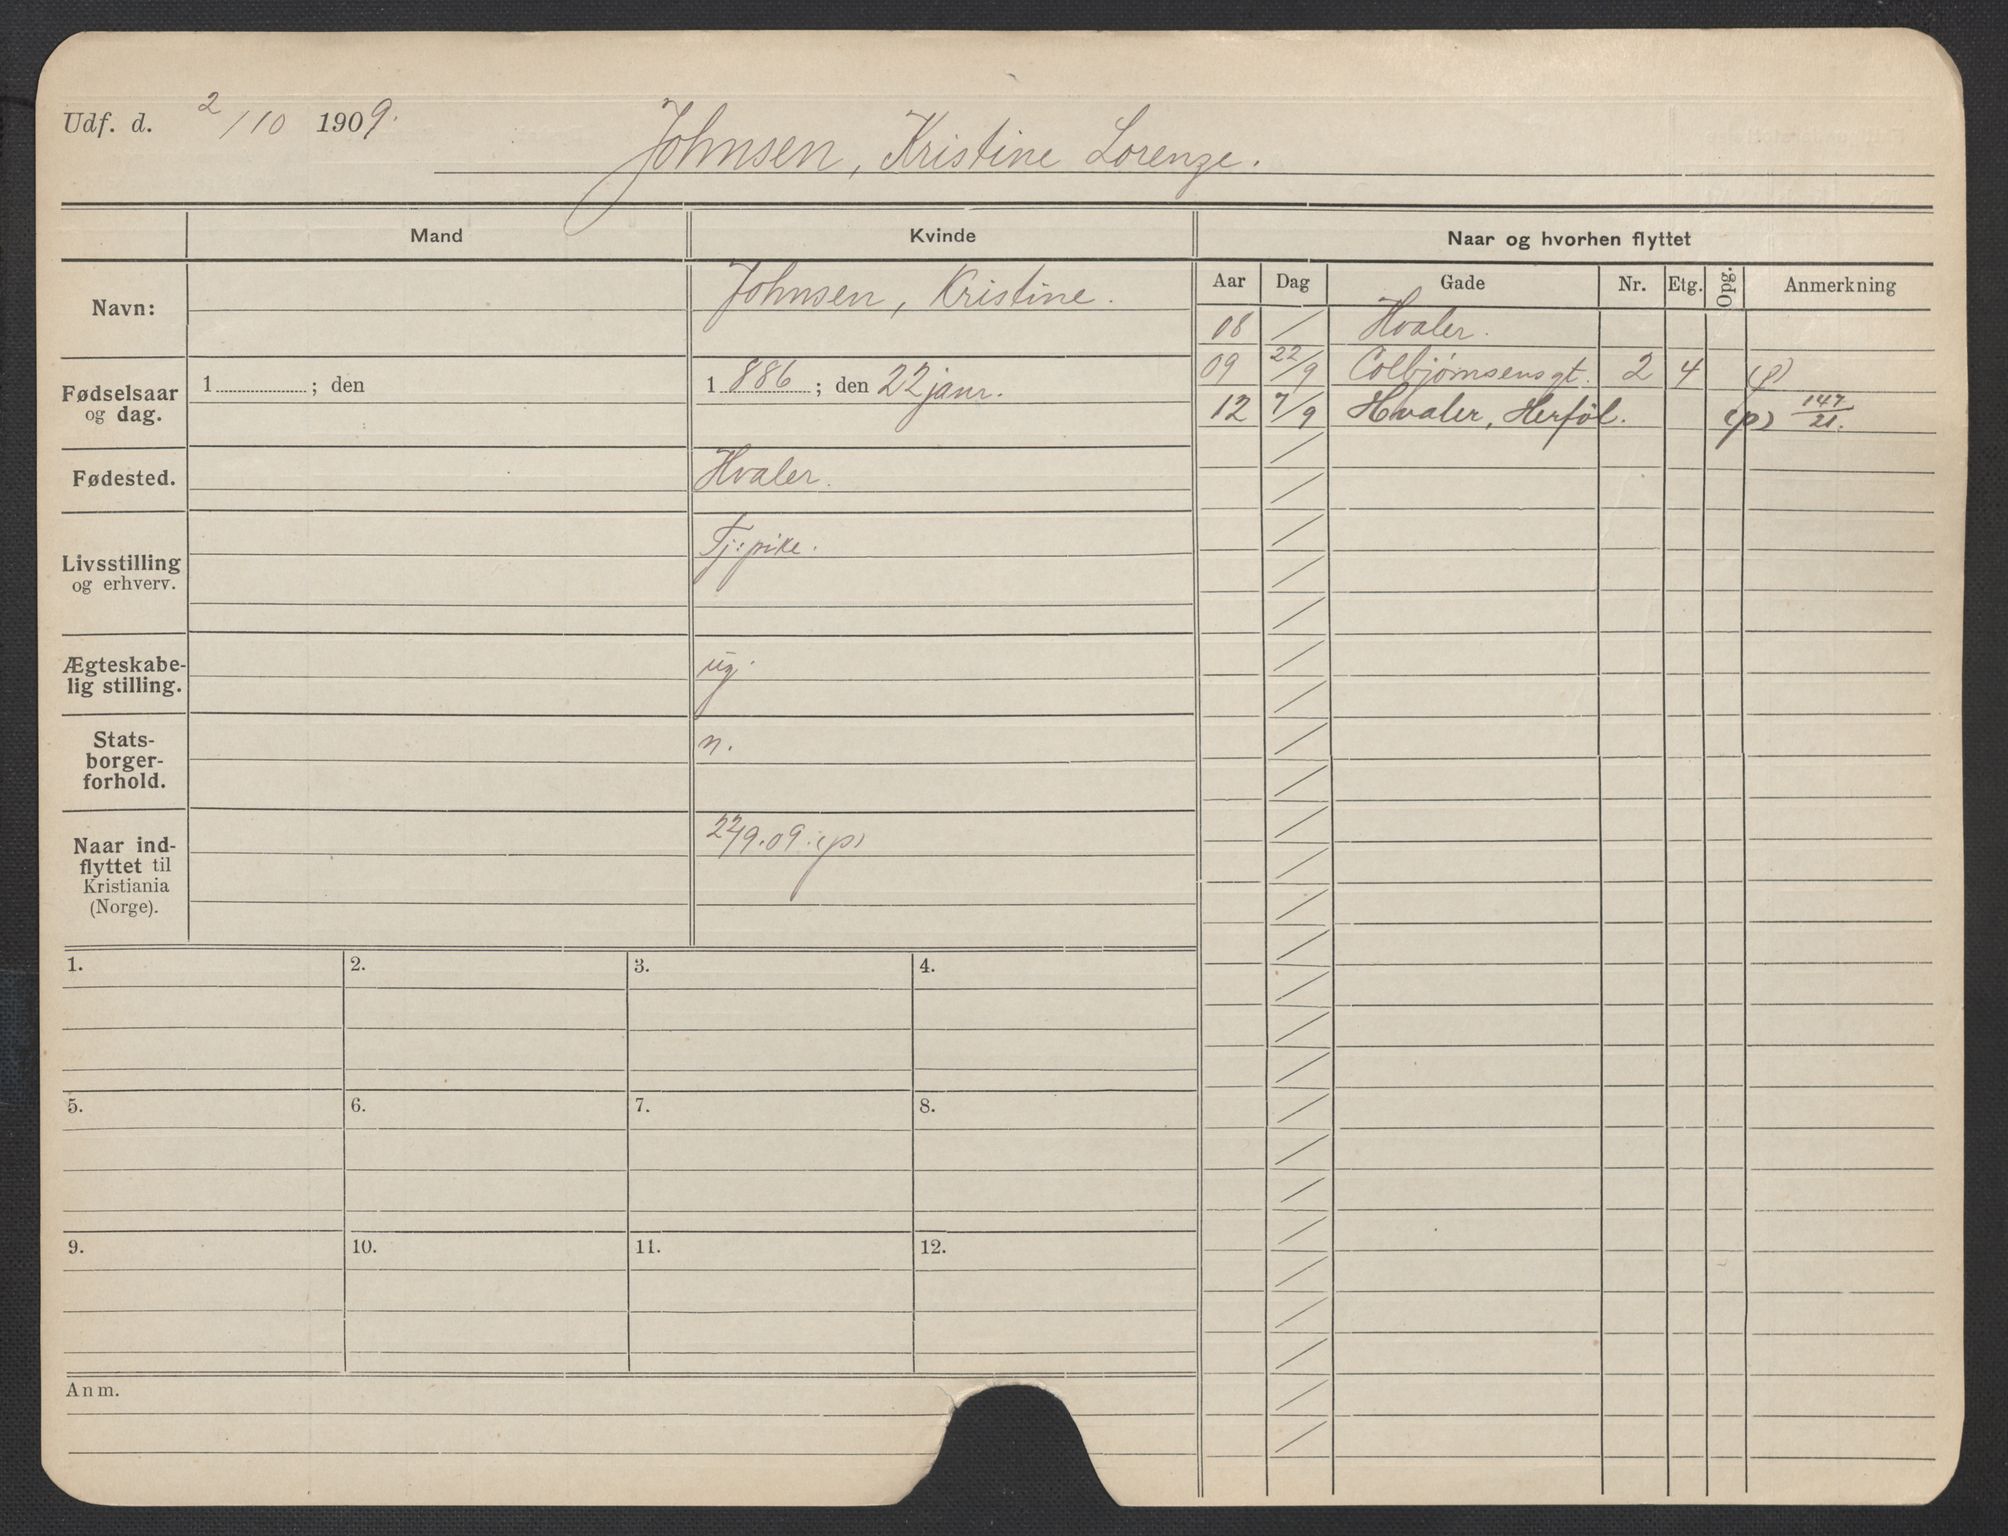 Udf. d. 2/10 1909.
Johnsen, Kristine Lorenze.
Mand
Kvinde
Naar og hvorhen flyttet
Aar Dag Gade Nr. Etg. Opg. Anmerkning
Navn:
Johnsen, Kristine.
Fødselsaar
og dag.
1 ; den
1 886 ; den 22 janr.
Fødested.
Hvaler.
Livsstilling
og erhverv.
Tj: pike.
Ægteskabe-
lig stilling.
ug.
Stats-
borger-
forhold.
n.
Naar ind-
flyttet til
Kristiania
(Norge).
22/9.09. (p)
08 / Hvaler.
09 22/9 Colbjørnsensgt. 2 4 (p)
12 7/9 Hvaler, Herføl. (p) 147/21.
1. 2. 3. 4.
5. 6. 7. 8.
9. 10. 11. 12.
Anm.